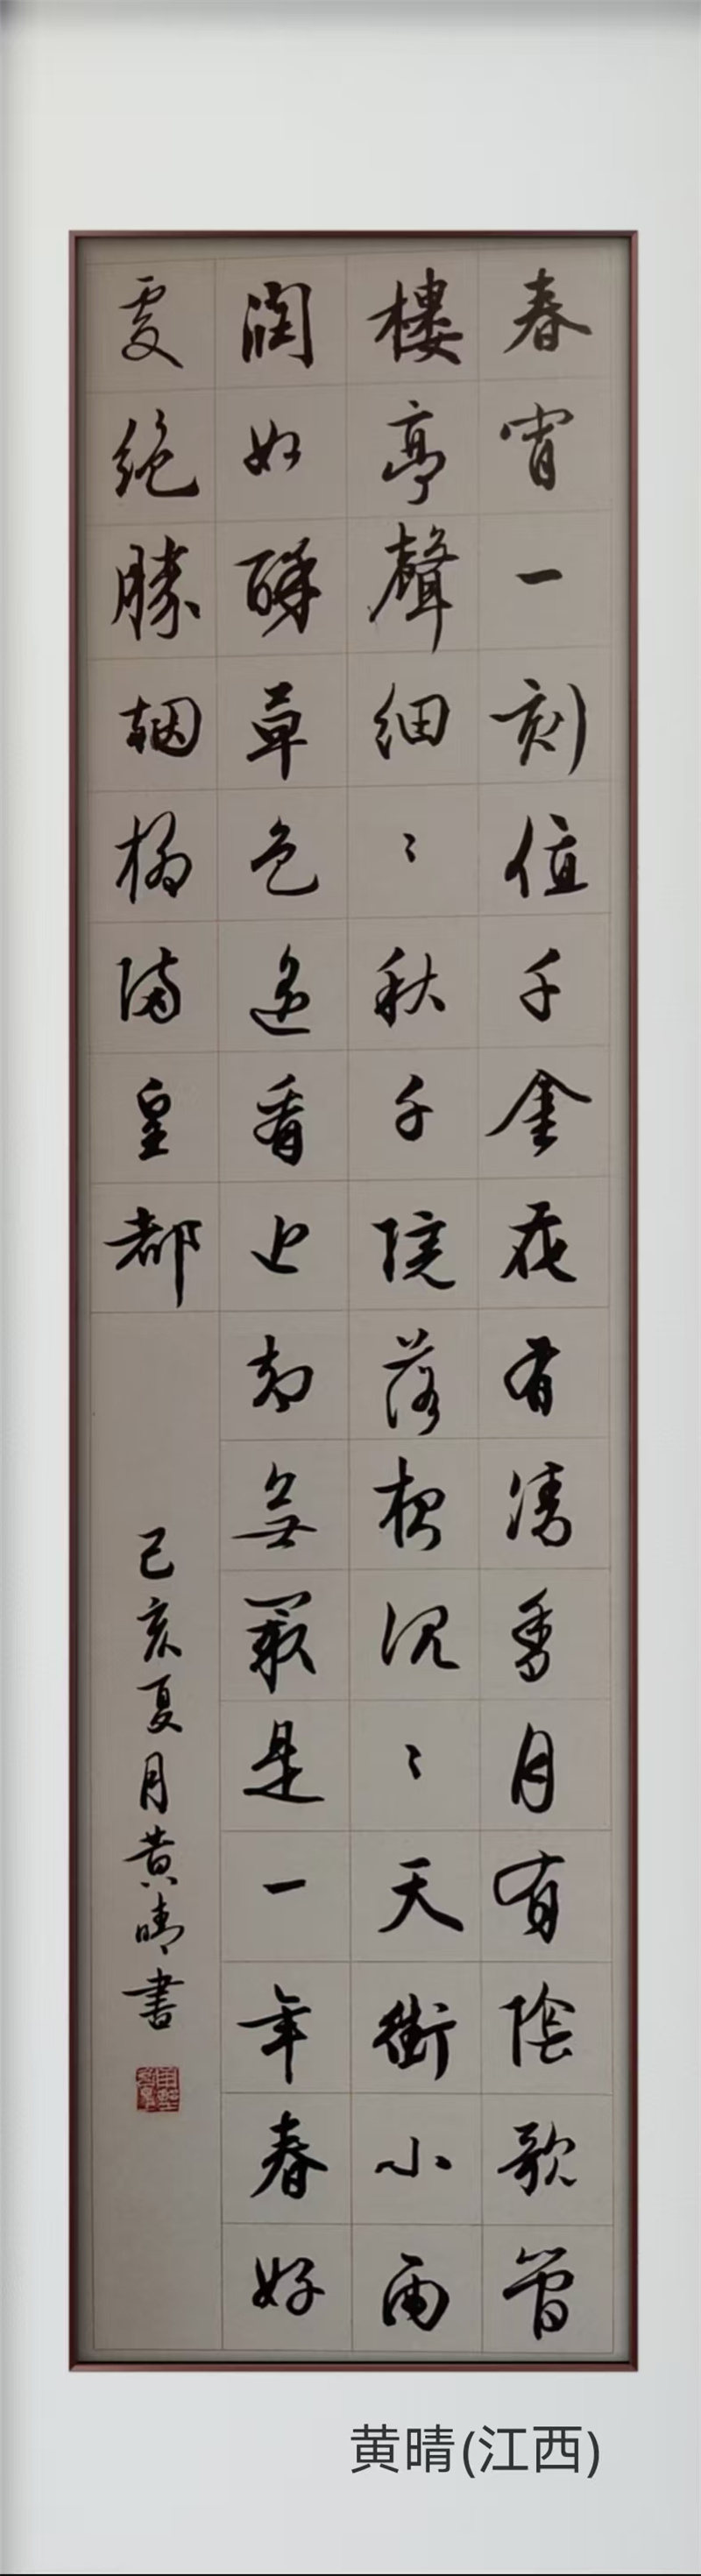 春宵一刻值千金花有清香月有陰歌管
樓亭聲細〻秋千院落夜沉〻天街小雨
潤如酥草色遙看近却無最是一年春好
處絕勝煙柳滿皇都
己亥夏月黄晴書
黄晴(江西)